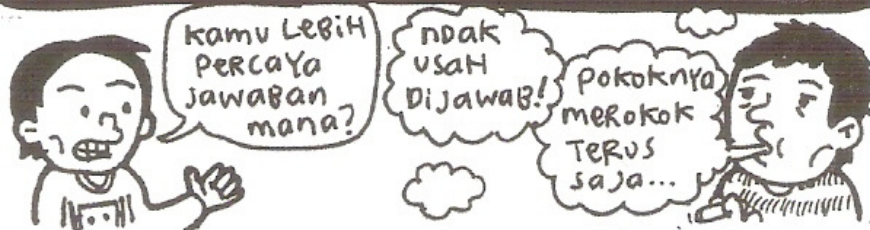 KAMU LEBIH
PERCAYA
JAWABAN
MANA?
NDAK
USAH
DIJAWAB!
POKOKNYA
MEROKOK
TERUS
SAJA...